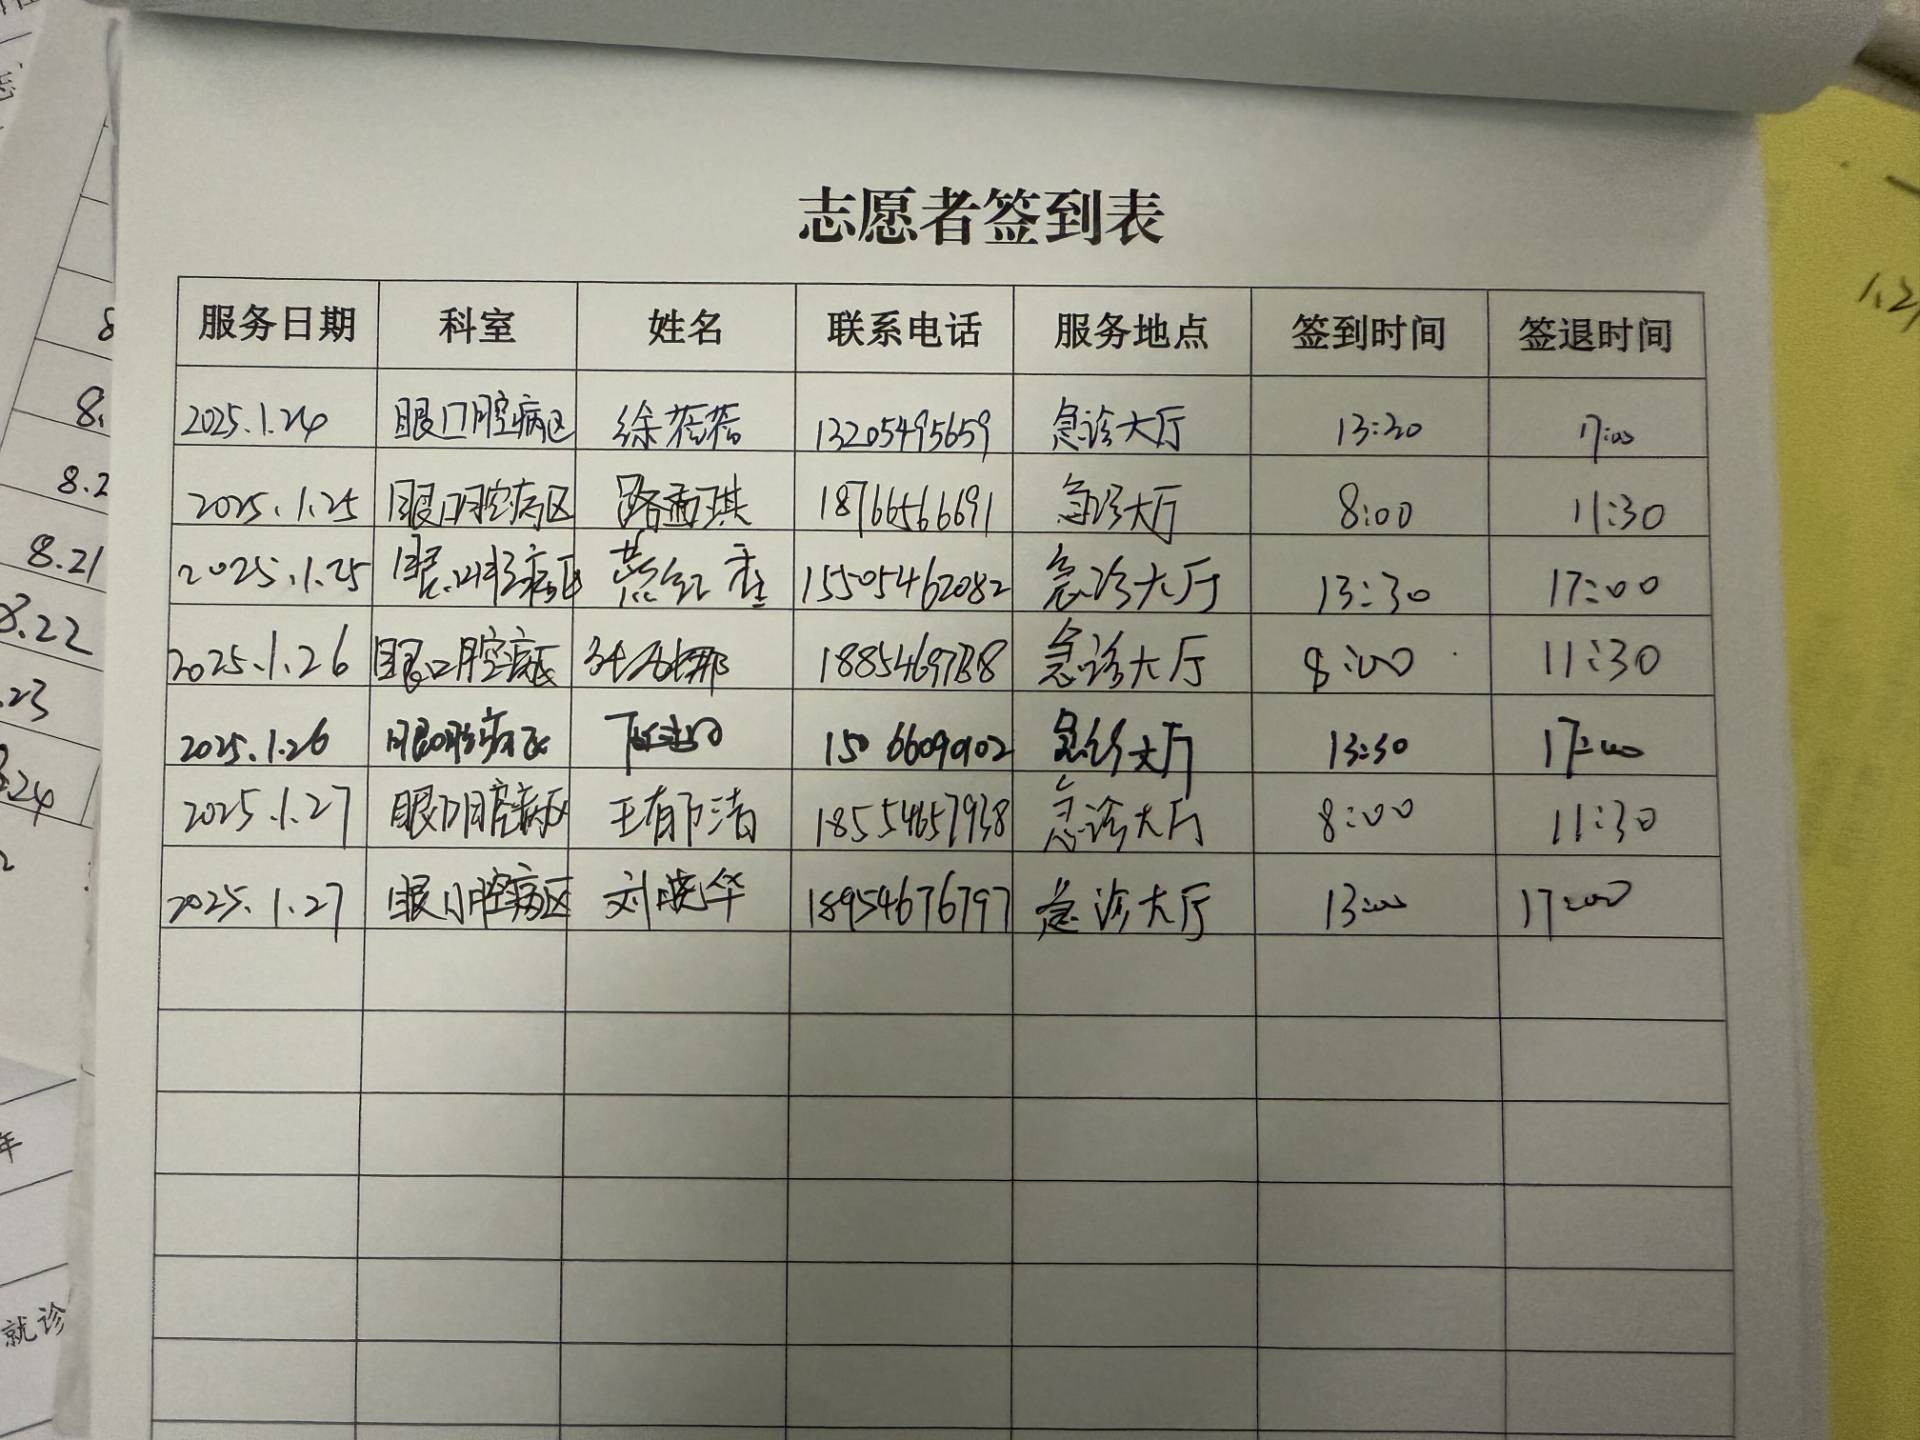 志愿者签到表
服务日期 科室 姓名 联系电话 服务地点 签到时间 签退时间
2025.1.24 眼口腔病区 徐蓓蓓 13205495659 急诊大厅 13:30 17:00
2025.1.25 眼口腔病区 路雨琪 18766566691 急诊大厅 8:00 11:30
2025.1.25 眼口腔病区 15505462082 急诊大厅 13:30 17:00
2025.1.26 眼口腔病区 急诊大厅 8:00 11:30
2025.1.26 眼口腔病区 急诊大厅 13:30 17:00
2025.1.27 眼口腔病区 18554657938 急诊大厅 8:00 11:30
2025.1.27 眼口腔病区 刘晓华 18954676797 急诊大厅 13:00 17:00
8.21
8.22
.23
.24
年
就诊